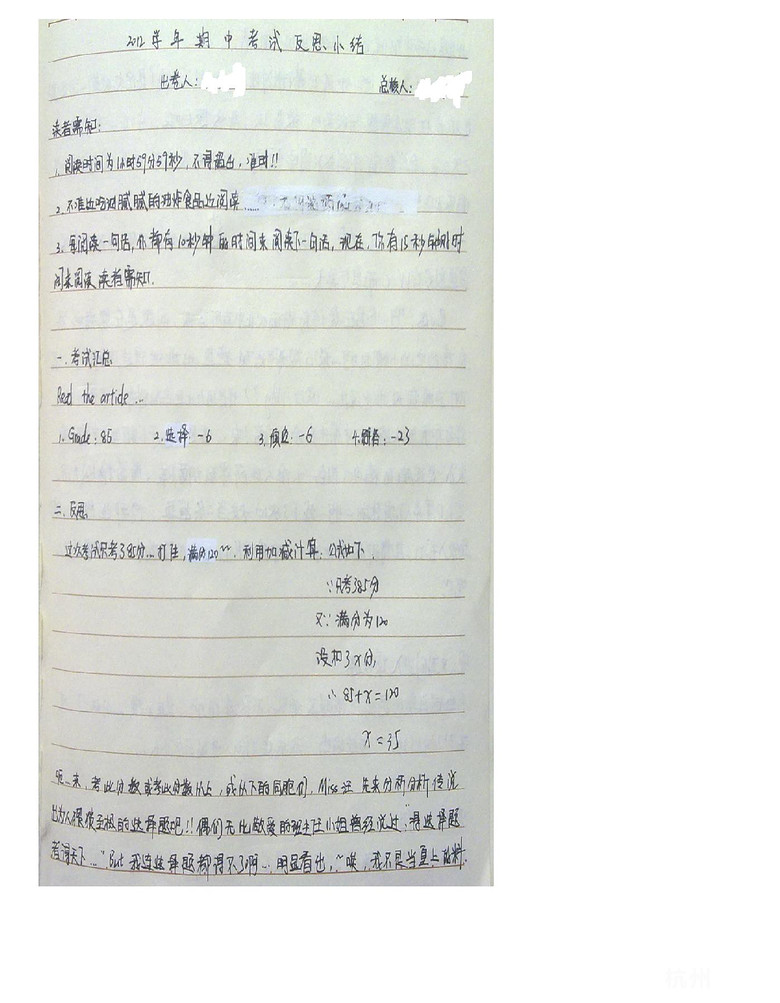 2012学年期中考试反思小结
出卷人: 总核人:
读者需知:
1. 阅读时间为1小时59分59秒,不得超出,准时!!
2. 不准边吃油腻腻的油炸食品边阅读......
3. 每阅读一句话,你都有10秒钟的时间来阅读下一句话,现在,你有15秒钟的时
间来阅读读者需知.
一. 考试汇总
Read the article ...
1. Grade: 85 2. 选择: -6 3. -6 4. -23
二. 反思
这次考试只考了85分...打住,满分120~~ 利用加减计算, 公式如下
∵只考了85分
又∵满分为120
设扣了x分,
∴85+x=120
x=35
来,考此分数或考此分数以上,或以下的同胞们,Miss 先来分析分析传说
出为人模模 的选择题吧!!俺们无比敬爱的班主任小姐曾经说过,“得选择题
者得天下...” But 我连选择题都得不了啊... 明显看出,~唉,我不是当皇上的料.